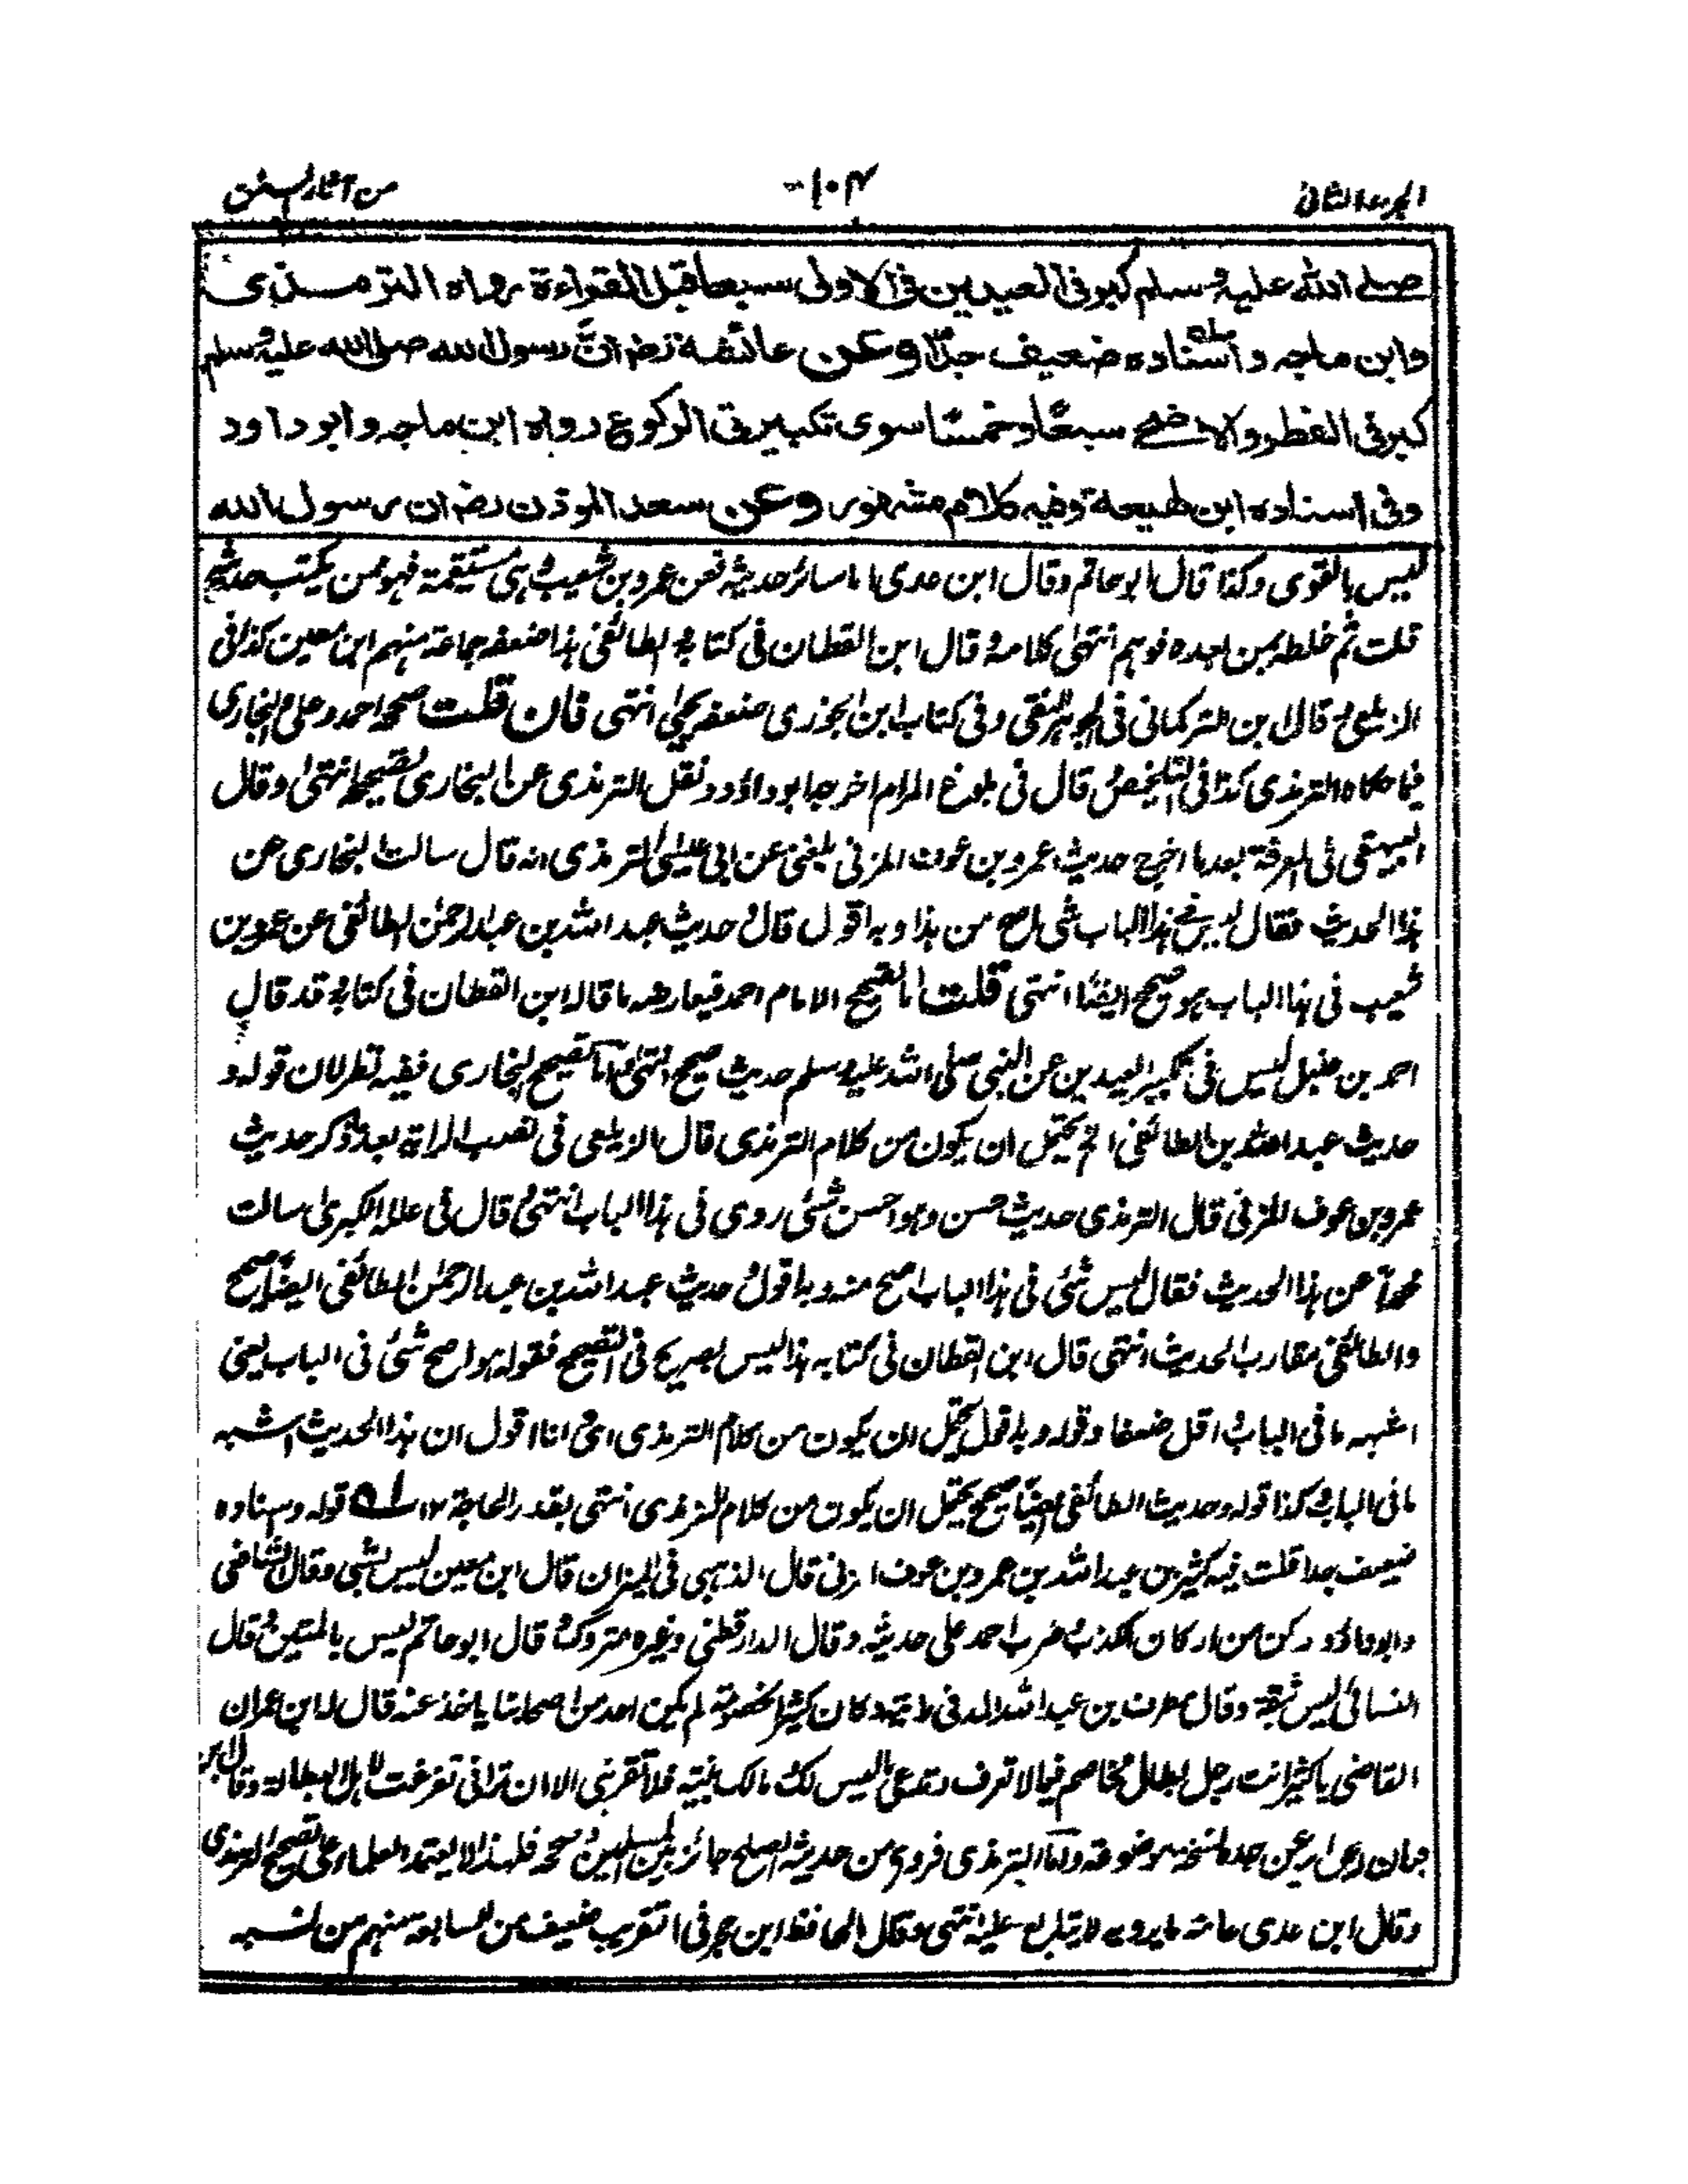 الجزء الثانی
۱۰۴
من آثار السنن
صلی الله علیه وسلم کبر فی العیدین فی الاولی سبعا قبل القراءة رواه الترمذی
وابن ماجه واسناده ضعیف جدًّا وعن عائشة رضـ انّ رسول الله صلی الله علیه وسلم
کبر فی الفطر والاضحی سبعًا وخمسًا سوی تکبیرتی الرکوع رواه ابن ماجه وابو داود
وفی اسناده ابن لهیعة وفیه کلام مشهور وعن سعد المؤذن رضـ ان رسول الله
لیس بالقوی وکذا قال ابو حاتم وقال ابن عدی اما سائر حدیثه فعن عمرو بن شعیب وہی مستقیمة فہو ممن یکتب حدیثه
قلت ثم خلطه بمن بعده فوہم انتہیٰ کلامه وقال ابن القطان فی کتابه والطائفی ہذا ضعفه جماعة منہم ابن معین کذا فی
الزیلعی وقال ابن الترکمانی فی الجوہر النقی وفی کتاب ابن الجوزی ضعفه یحییٰ انتہی فان قلت صححه احمد وعلی والبخاری
فیما حکاه الترمذی کذا فی التلخیص وقال فی بلوغ المرام اخرجه ابو داؤد ونقل الترمذی عن البخاری تصحیحه انتہیٰ وقال
البیہقی فی المعرفة بعد ما اخرج حدیث عمرو بن عوف المزنی بلغنی عن ابی عیسیٰ الترمذی انه قال سالت البخاری عن
ہذا الحدیث فقال لیس فی ہذا الباب شیٔ اصح من ہذا وبه اقول قال وحدیث عبد الله بن عبد الرحمٰن الطائفی عن عمرو بن
شعیب فی ہذا الباب ہو صحیح ایضًا انتہی قلت اما تصحیح الامام احمد فیعارضه ما قاله ابن القطان فی کتابه وقد قال
احمد بن حنبل لیس فی تکبیر العیدین عن النبی صلی الله علیه وسلم حدیث صحیح انتہیٰ واما تصحیح البخاری ففیه نظر لان قوله و
حدیث عبد الله بن الطائفی الخ یحتمل ان یکون من کلام الترمذی قال الزیلعی فی نصب الرایة بعد ما ذکر حدیث
عمرو بن عوف المزنی قال الترمذی حدیث حسن وہو احسن شیٔ روی فی ہذا الباب انتہیٰ وقال فی علله الکبریٰ سالت
محمدًا عن ہذا الحدیث فقال لیس شیٔ فی ہذا الباب اصح منه وبه اقول وحدیث عبد الله بن عبد الرحمٰن الطائفی ایضًا صحیح
والطائفی مقارب الحدیث انتہی قال ابن القطان فی کتابه ہذا لیس بصریح فی التصحیح فقوله ہو اصح شیٔ فی الباب یعنی
اشبه ما فی الباب واقل ضعفا وقوله وبه اقول یحتمل ان یکون من کلام الترمذی ای وانا اقول ان ہذا الحدیث اشبه
ما فی الباب وکذا قوله وحدیث الطائفی ایضًا صحیح یحتمل ان یکون من کلام الترمذی انتہی بقدر الحاجة ۱۲ قوله واسناده
ضعیف جدا قلت فیه کثیر بن عبد الله بن عمرو بن عوف المزنی قال الذہبی فی المیزان قال ابن معین لیس بشیٔ وقال الشافعی
وابو داؤد رکن من ارکان الکذب وضرب احمد علی حدیثه وقال الدارقطنی وغیره متروک وقال ابو حاتم لیس بالمتین وقال
النسائی لیس بثقة وقال مطرف بن عبد الله المدنی رایته وکان کثیر الخصومة لم یکن احد من اصحابنا یاخذ عنه قال له ابن عمران
القاضی یا کثیر انت رجل بطال تخاصم فیما لا تعرف وتدعی ما لیس لک وما لک بینة فلا تقربنی الا ان ترانی تفرغت لاہل البطالة وقال ابن
حبان له عن ابیه عن جده نسخة موضوعة واما الترمذی فروی من حدیثه الصلح جائز بین المسلمین وصححه فلہذا لا یعتمد العلماء علی تصحیح الترمذی
وقال ابن عدی عامة ما یرویه لا یتابع علیه انتہی وقال الحافظ ابن حجر فی التقریب ضعیف من السابعة منہم من نسبه